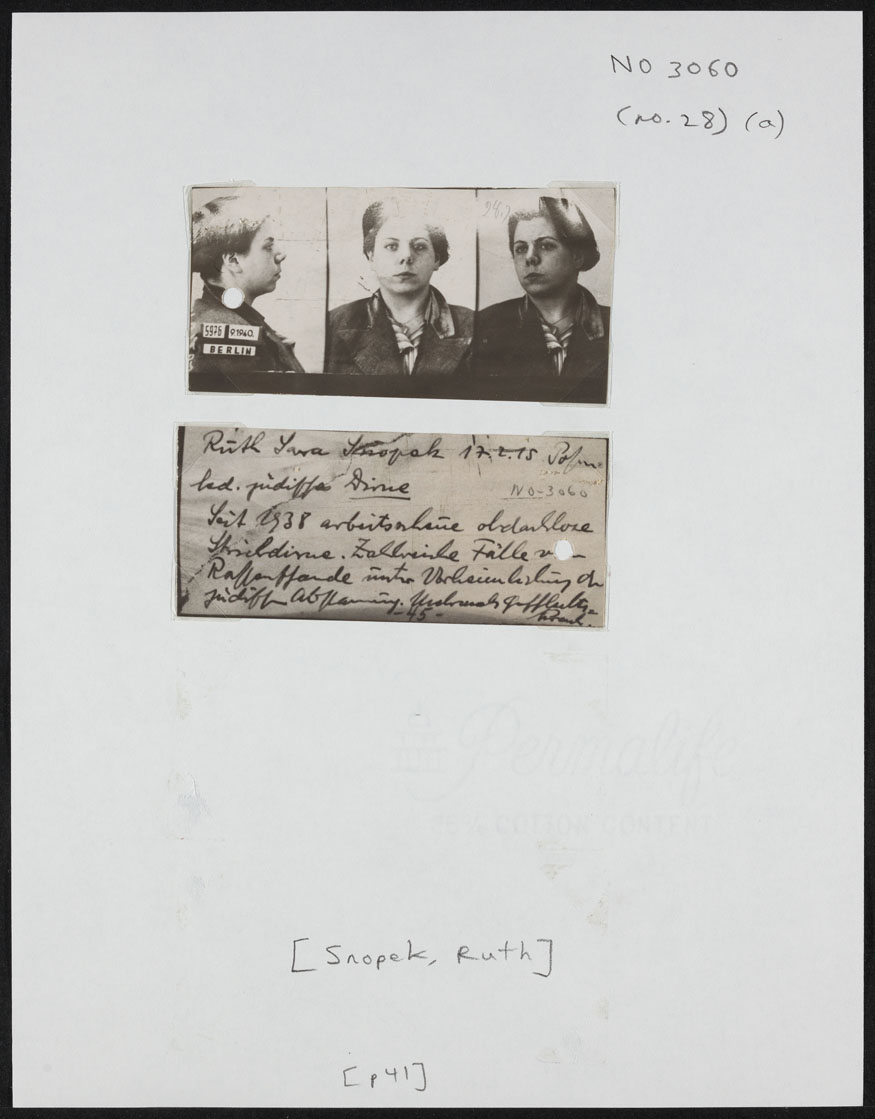 NO 3060
(no. 28) (a)
28.7
5976 9.1940.
BERLIN
Ruth Sara Snopek 17.2.15 Posen
led. jüdische Dirne
NO-3060
Seit 1938 arbeitsscheue obdachlose
Strichdirne. Zahlreiche Fälle von
Rassenschande unter Verheimlichung der
jüdischen Abstammung.
-45-
Permalife
25% COTTON CONTENT
[Snopek, Ruth]
[p41]